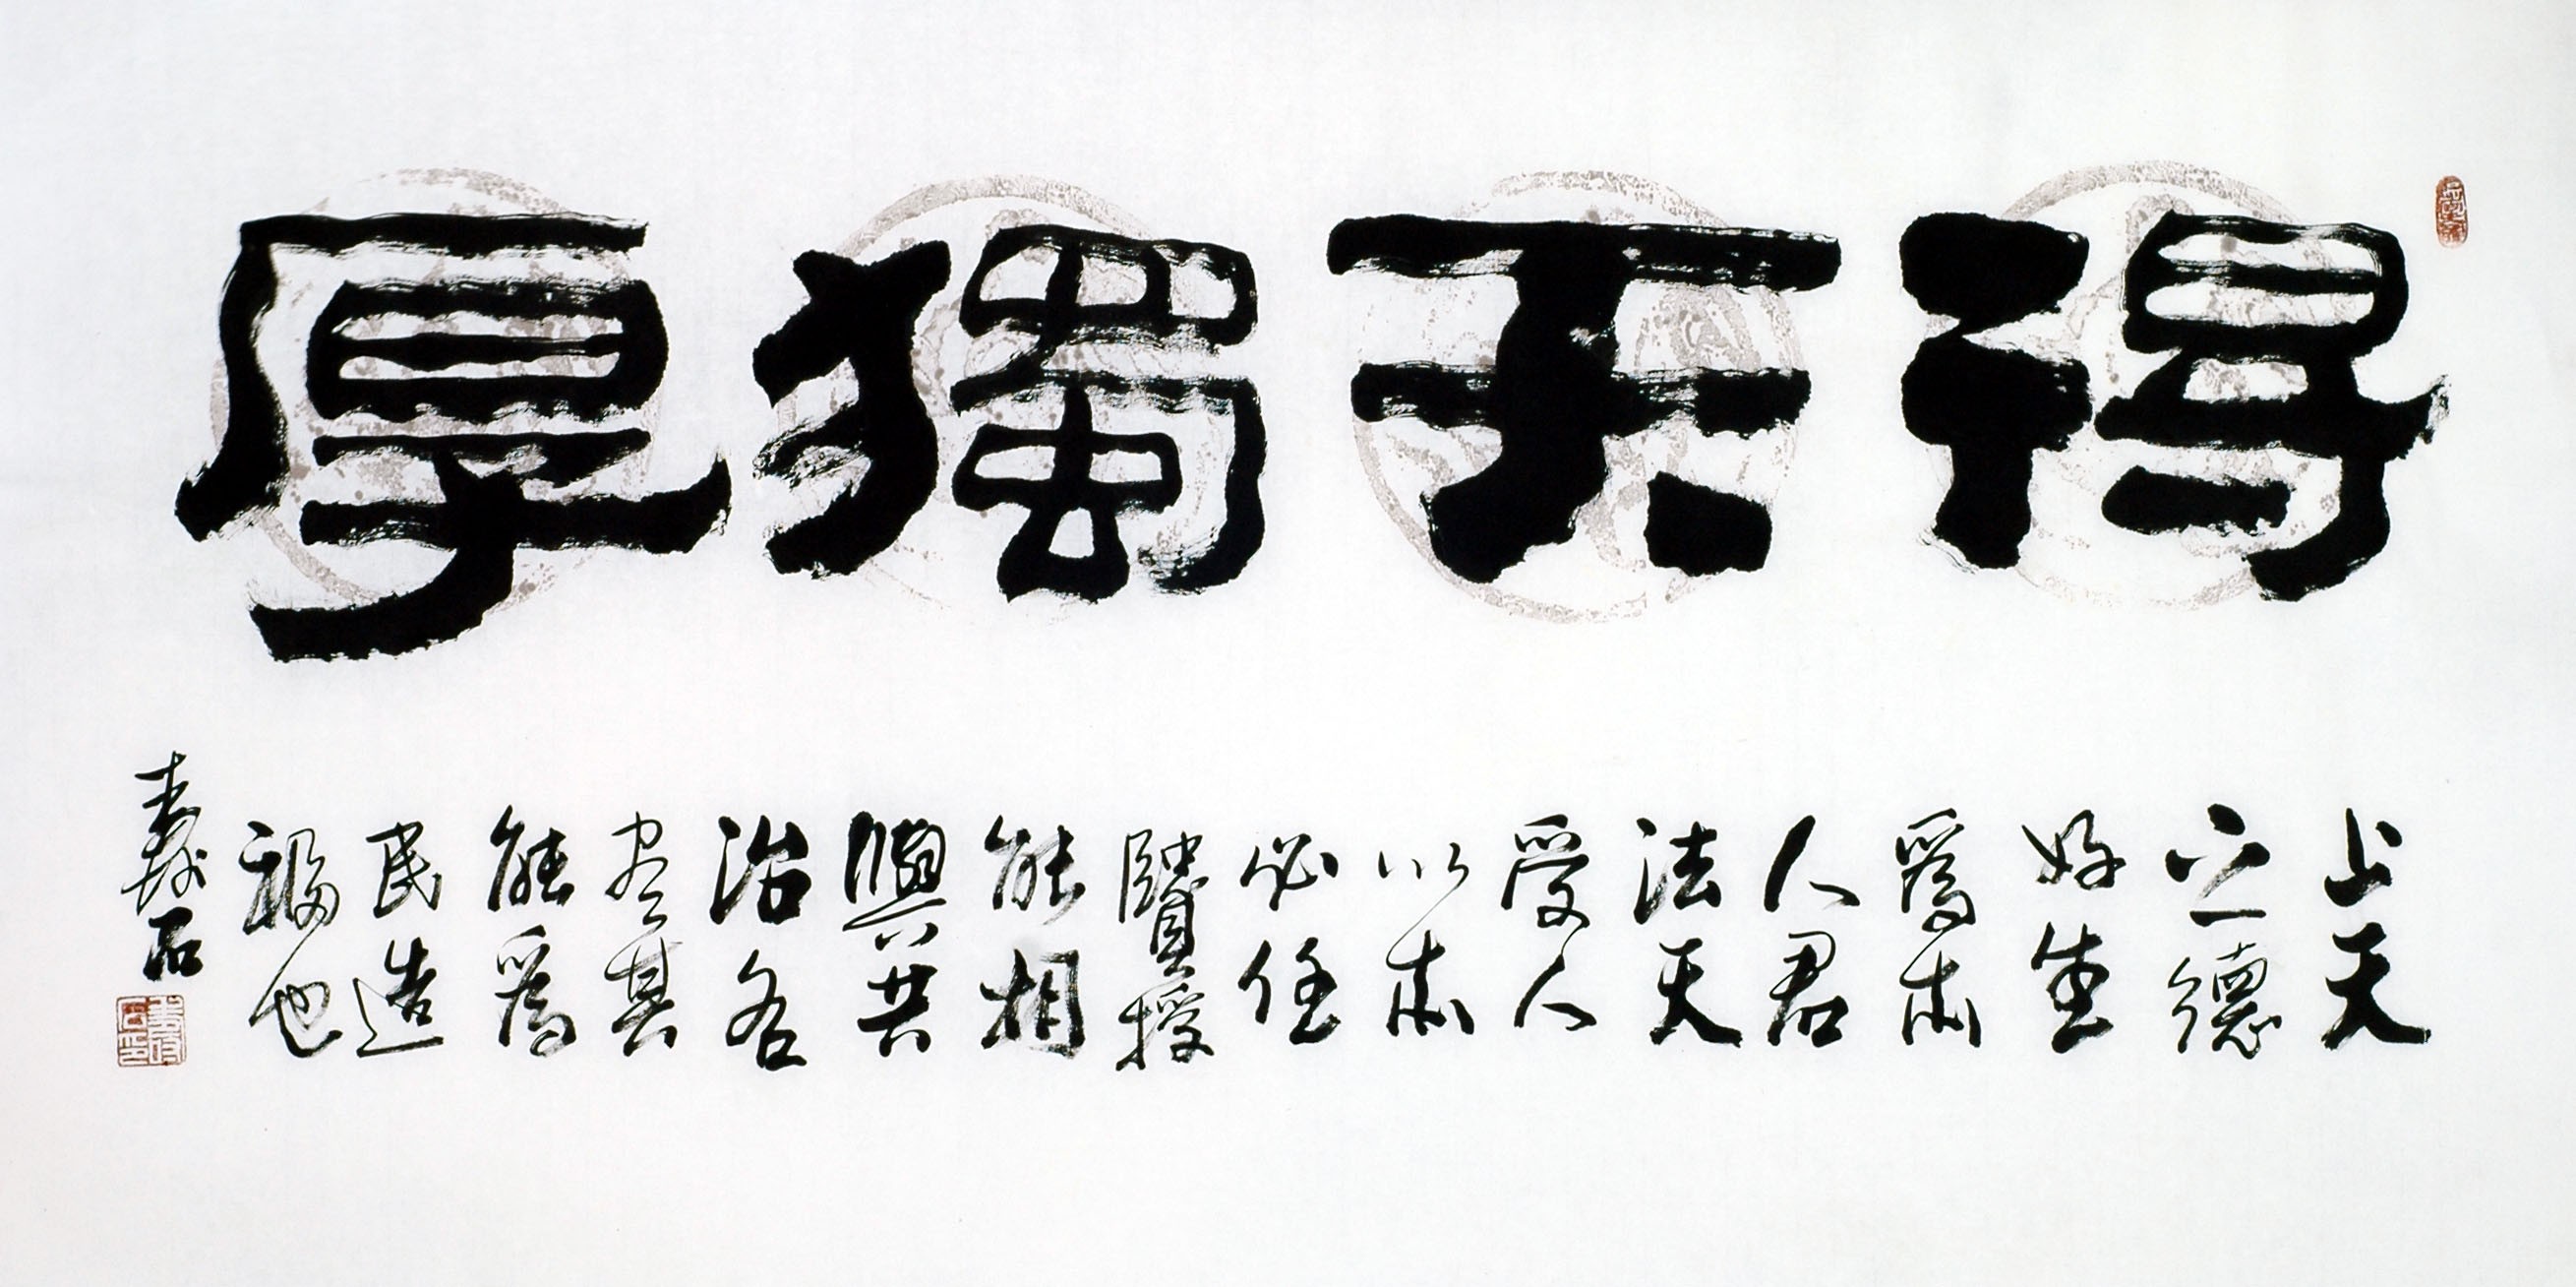 得天獨厚
上天
之德
好生
爲本
人君
法天
受人
以本
必任
賢授
能相
與共
治各
盡其
能爲
民造
福也
壽石